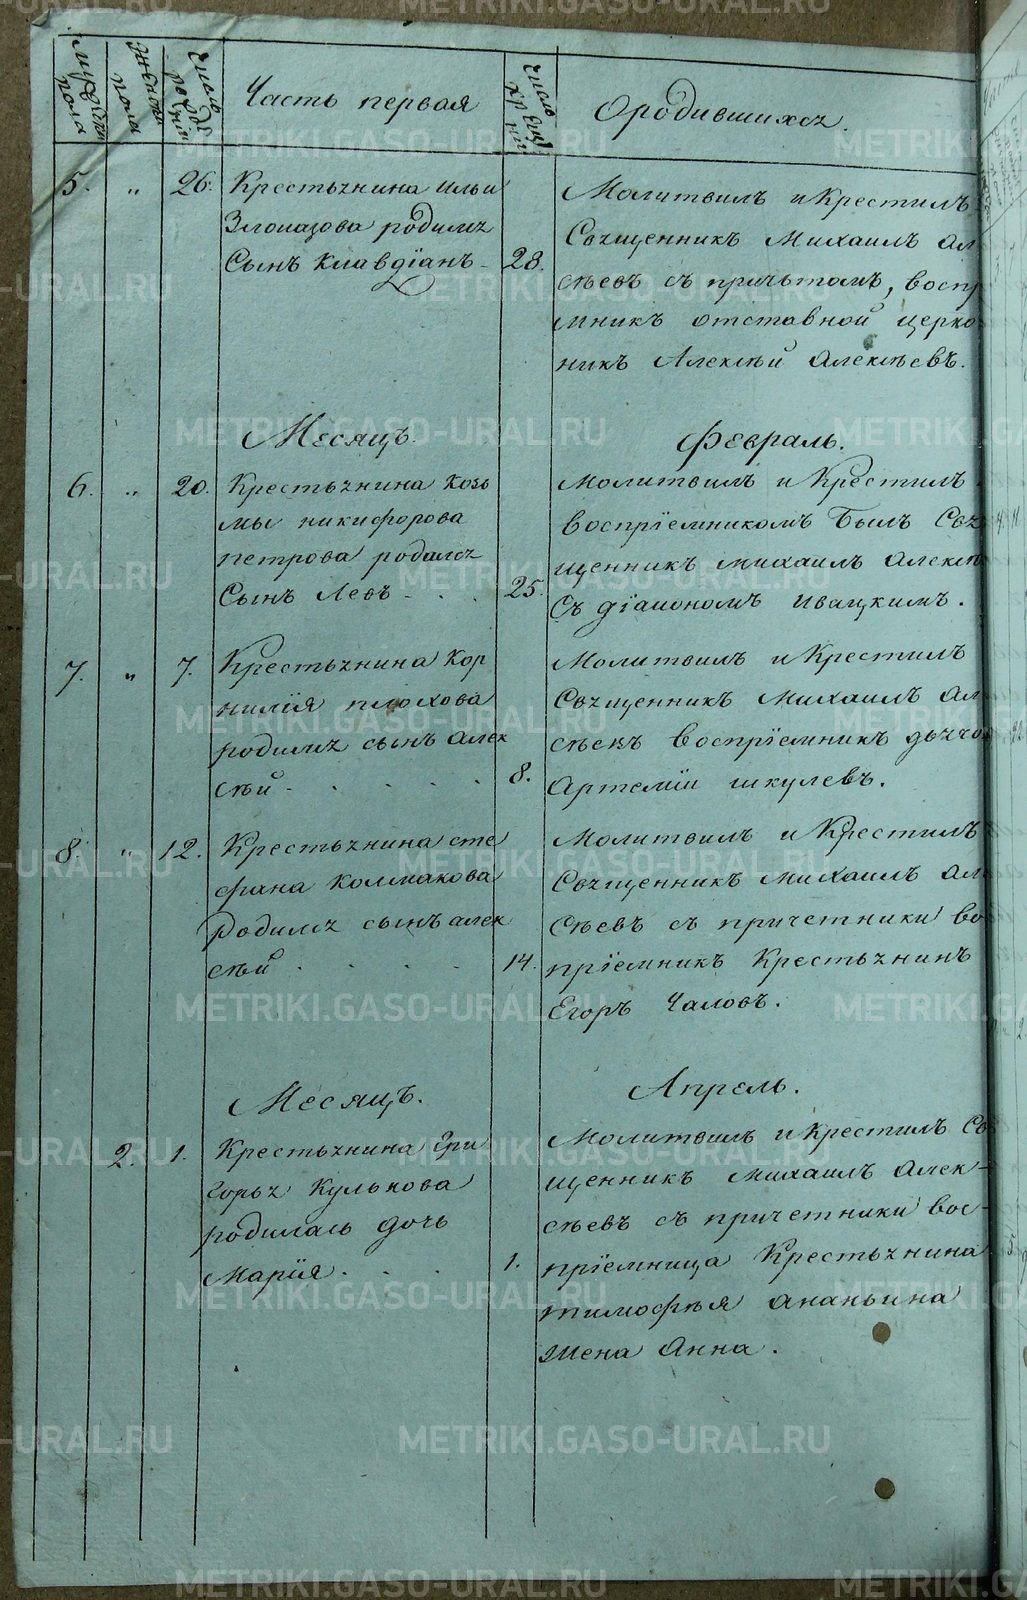 Мужеска пола
женска пола
число рожденія
Часть первая
число крещенія
О родившихся.
5. „ 26. Крестьянина Ильи
Злоказова родился
Сынъ Клавдіанъ
28.
Молитвилъ и Крестилъ
Священникъ Михаилъ Ал
сѣевъ съ причьтомъ, воспр
мникъ отставной церко
никъ Алексѣй Алексѣевъ.
Месяцъ. Февраль.
6. „ 20. Крестьянина Козь
мы никифорова
петрова родился
Сынъ Левъ . . .
25.
Молитвилъ и Крестилъ
воспріемникомъ Былъ Свя
щенникъ михаилъ Алексѣ
Съ діакономъ Ивацкимъ.
7. „ 7. Крестьянина Кор
нилія плохова
родился сынъ алек
сѣй . . . . .
8.
Молитвилъ и Крестилъ
Священникъ Михаилъ Ал
сѣевъ воспріемникъ дьячо
Артемій шкулевъ.
8. „ 12. Крестьянина сте
фана колмакова
родился сынъ алек
сѣй . . . .
14.
Молитвилъ и Крестилъ
Священникъ Михаилъ Ал
сѣевъ съ причетники во
пріемникъ Крестьянинъ
Егоръ Чаловъ.
Месяцъ. Апрель.
2. 1. Крестьянина Гри
горья Кулькова
родилась дочь
Марія . . .
1.
Молитвилъ и Крестилъ Св
щенникъ михаилъ алек-
сѣевъ съ причетники вос-
пріемница Крестьянина
тимофѣя ананьина
жена Анна.
METRIKI.GASO-URAL.RU